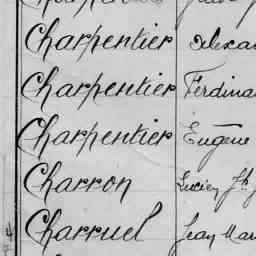 Charpentier Alexa
Charpentier Ferdina
Charpentier Eugène
Charron Lucien Jh
Charruel Jean Mar